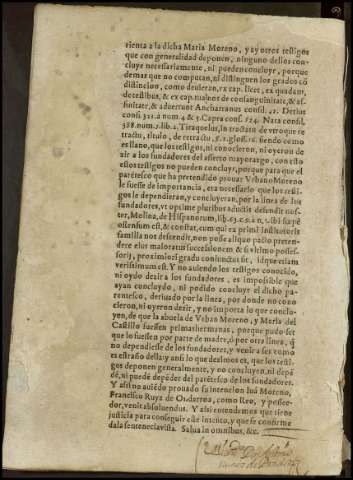 rienta a la dicha Maria Moreno, y ay otros testigos
que con generalidad deponen, ninguno dellos con-
cluye necessariamente, ni pueden concluyr, porque
demas que no competan, ni distinguen los grados cõ
distincion, como deuieran, ex cap. licet, ex quadam,
de testibus, & ex cap. tuas de consanguinitate, & af-
finitate, & aduertunt Ancharranus consil. 42. Decius
consil. 321. à num. 4 & 5. Capra cons. 124. Nata consil.
388. num. 2. lib. 2. Tiraquelus, in tractatu de vtroque re
tractu, titulo, de retractu, §. 1. gloss. 16. siendo como
es llano, que los testigos, ni conocieron, ni oyeron de
zir a los fundadores del asserto mayorazgo, con esto
estos testigos no pueden concluyr, porque para que el
parẽtesco que ha pretendido prouar Vrbano Moreno
le fuesse de importancia, era necessario que los testi-
gos le dependieran, y concluyeran, por la linea de los
fundadores, vt optime pluribus adductis defendit nos-
ter, Molina, de Hispanorum, lib.
ostensum est, & constat, cum qui ex primi institutoris
familia non descendit, non posse alique pacto preten-
dere eius maioratus successionem & si vltimo posses-
sori, proximiori gradu coniunctus sit, idque etiam
verissimum est. Y no auiendo los testigos conocido,
ni oydo dezir a los fundadores, es impossible que
ayan concluydo, ni podido concluyr el dicho pa-
rentesco, deriuado por la linea, por donde no cono-
cieron, ni oyeron dezir, y no importa lo que conclu-
yen, de que la abuela de Vrban Moreno, y Maria del
Castillo fuessen primas hermanas, porque pudo ser
que lo fuessen por parte de madre, ò por otra linea, q̃
no dependiesse de los fundadores, y venir a ser como
es estraño della, y ansi lo que dealmos es, que los testi-
gos deponen generalmente, y no concluyen, ni depẽ
dẽ, ni puedẽ depẽder del parẽtesco de los fundadores.
Y assi no auiẽdo prouado su intencion Iuã Moreno,
Francisco Ruyz de Ondernea, como Reo, y posee-
dor, venit absoluendus. Y assi entendemos que tiene
justicia para conseguir este intento, y que se confirme
dala sentencia vista. Salua in omnibus, &c.